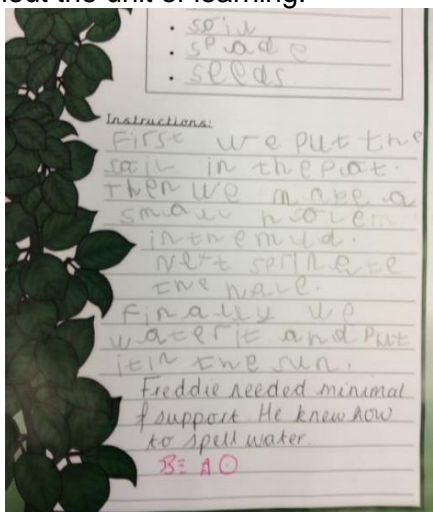 out the unit of learning.
• soil
• spade
• seeds
Instructions:
First we put the
soil in the pot.
Then we make a
small
in the mud.
Next
the
Finally we
water it and put
it in the sun.
Freddie needed minimal
support. He knew how
to spell water.